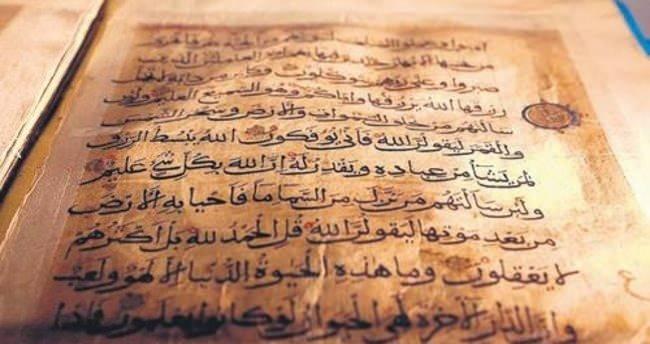 امنوا وعملوا الصلحت الجنة غرفا تجري
من تحتها الانهار خلدين فيها نعم اجر العملين الذين
صبروا وعلى ربهم يتوكلون وكاين من دابة لا تحمل
رزقها الله يرزقها واياكم وهو السميع العليم ولئن
سالتهم من خلق السموات والارض وسخر الشمس
والقمر ليقولن الله فانى يوفكون الله يبسط الرزق
لمن يشا من عباده ويقدر له ان الله بكل شي عليم
ولئن سالتهم من نزل من السما ما فاحيا به الارض
من بعد موتها ليقولن الله قل الحمد لله بل اكثرهم
لا يعقلون وما هذه الحيوة الدنيا الا لهو ولعب
وان الدار الاخرة لهي الحيوان لو كانوا يعلمون فاذا